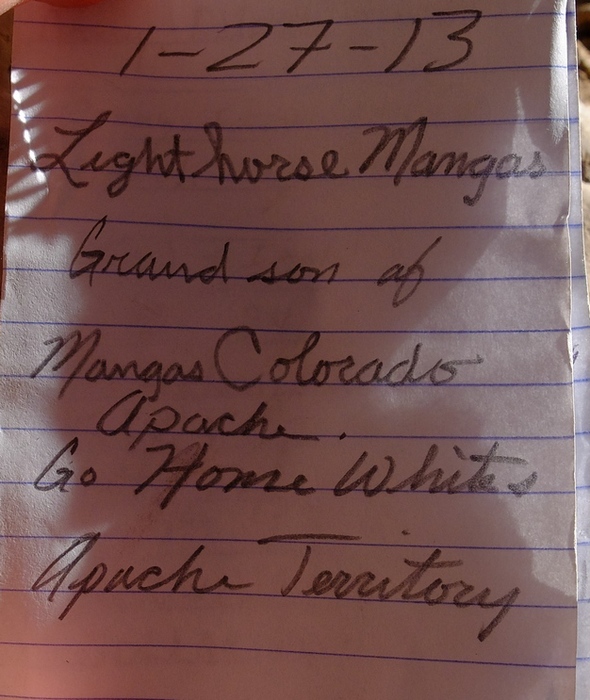 1-27-13
Light horse Mangas
Grand son of
Mangas Colorado
Apache.
Go Home Whites
Apache Territory